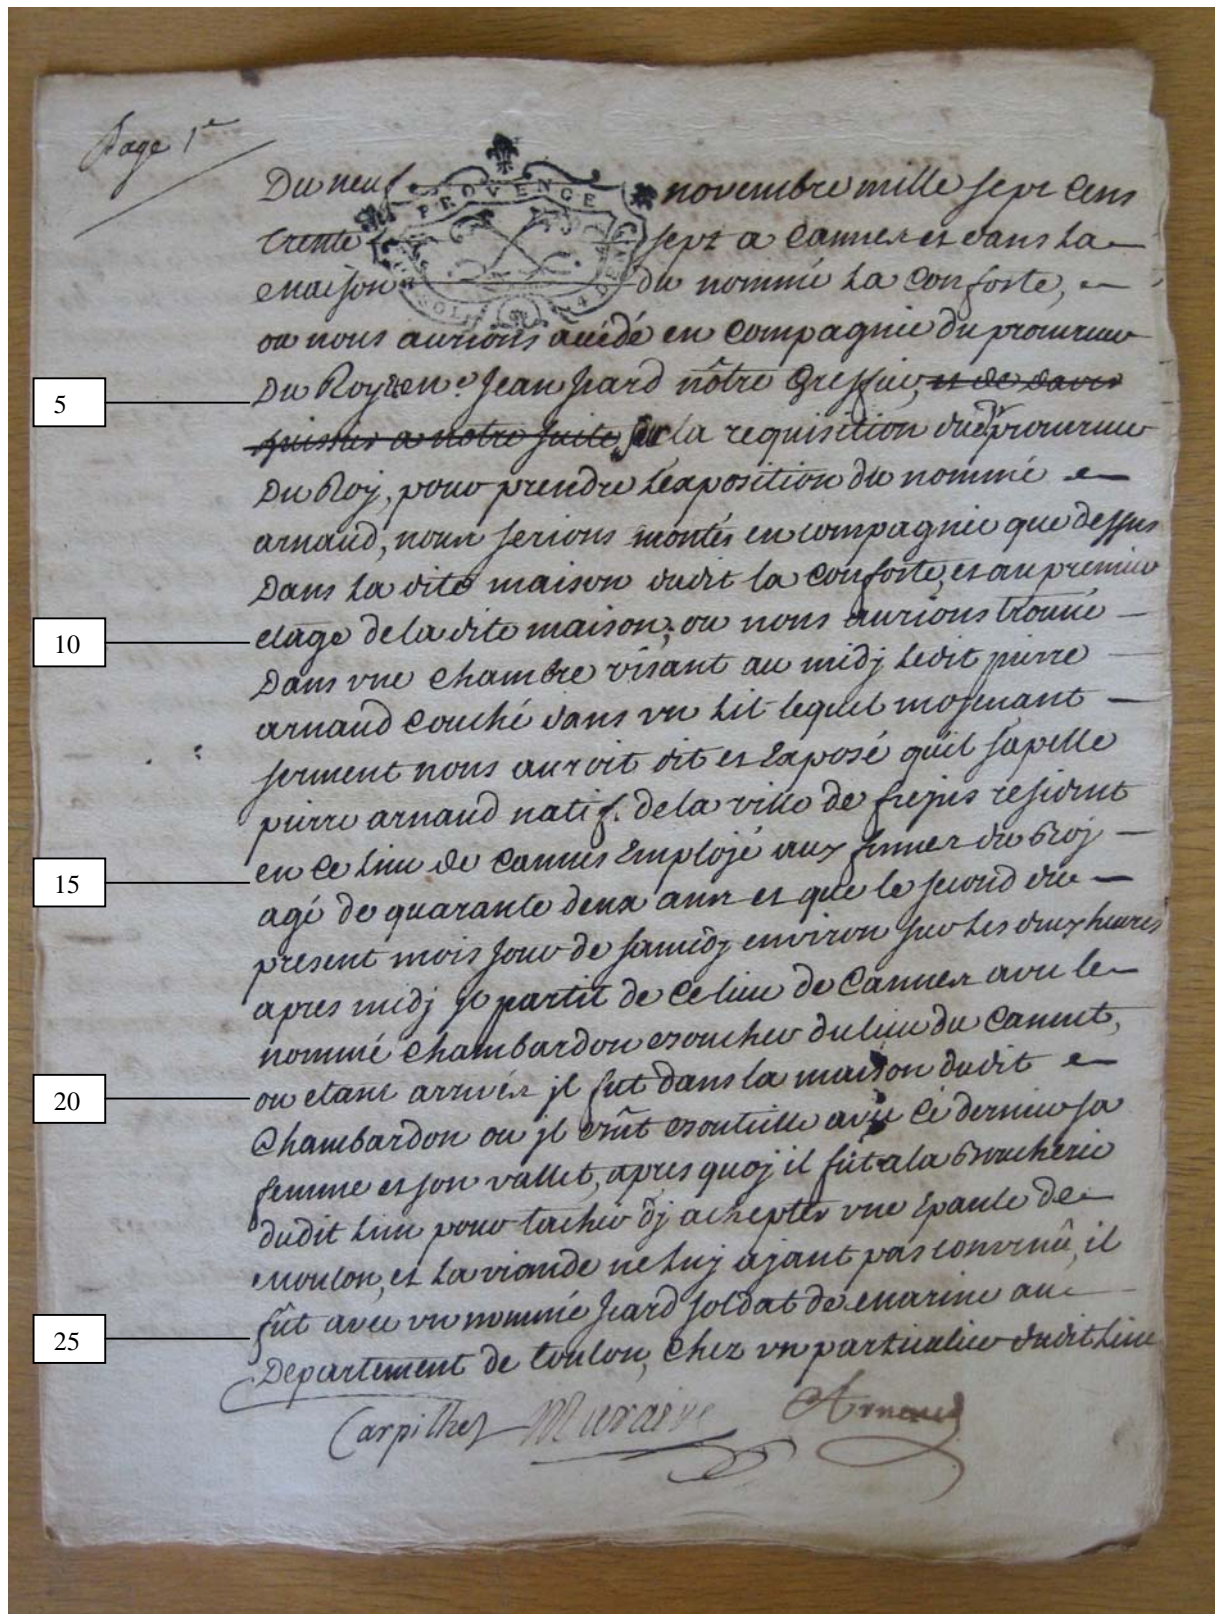 Page 1e
Du neuf novembre mille sept cens
trente sept a Cannes et dans la
maison du nommé la Conforte,
PROVENCE
ou nous aurions accédé en Compagnie du procureur
5
Du Roy Jean Jeard nôtre Greffier, et de
huissier a notre suite, sur la requisition dudt procureur
Du Roy, pour prendre lexposition du nommé
arnaud, nous serions montés en compagnie que dessus
Dans la dite maison dudit la Conforte, et au premier
10
etage de la dite maison, ou nous aurions trouué
Dans vne chambre visant au midj ledit pierre
arnaud Couché dans vn lit lequel mojenant
serment nous auroit dit et Exposé quil sapelle
pierre arnaud natif. de la ville de frejus residant
15
en Ce lieu de Cannes Employé aux fermes du Roj
agé de quarante deux ans et que le second du
present mois jour de samedj environ sur les deux heures
apres midj partit de Ce lieu de Cannes avec le
nommé Chambardon boucher du lieu du Cannet,
20
ou etant arrivés jl fut dans la maison dudit
Chambardon ou jl bût bouteille avec Ce dernier sa
femme et son vallet, apres quoj il fût a la Boucherie
dudit lieu pour tacher dj achepter vne Epaule de
mouton, et la viande ne luj ajant pas convenû, il
25
fût avec vn nommé Jeard soldat de marine au
Departement de toulon, Chez vn particulier dudit lieu
Carpilhet Muraire Arnaud